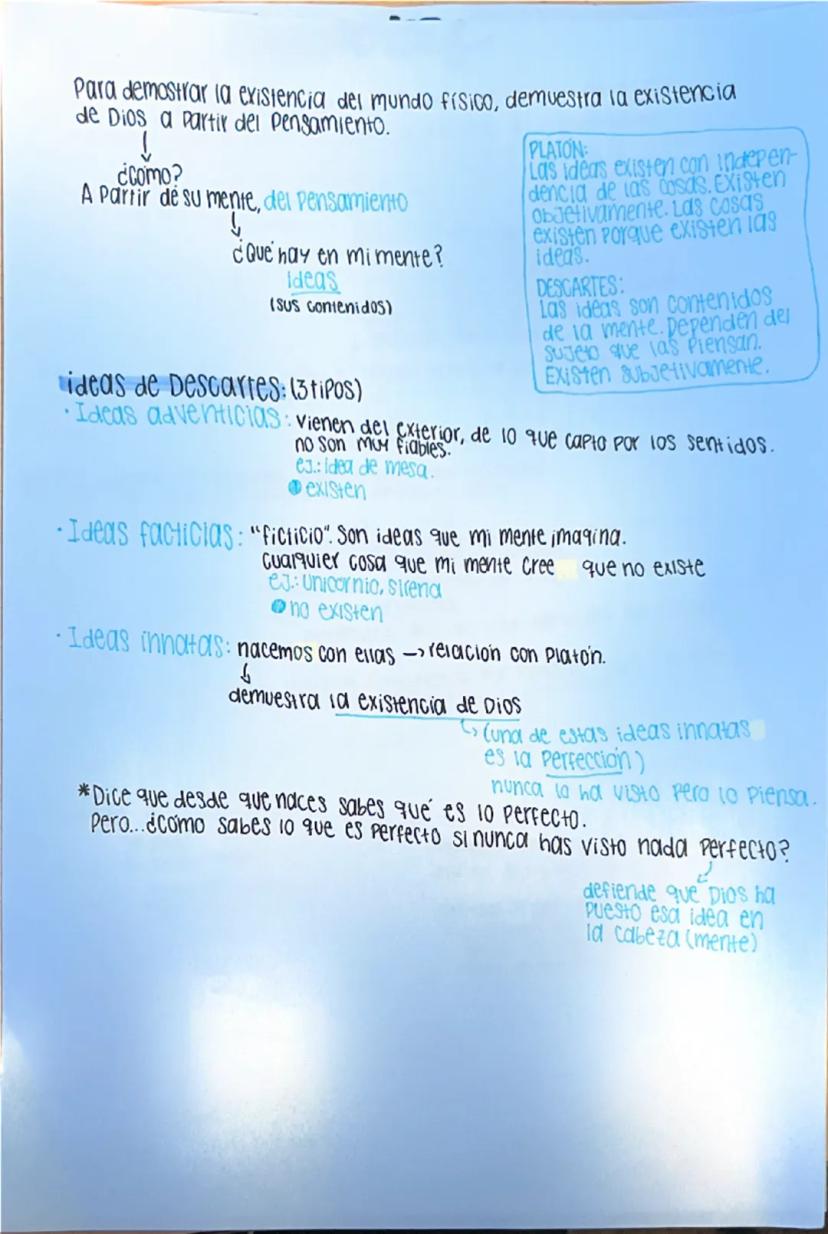 Para demostrar la existencia del mundo físico, demuestra la existencia
de Dios a partir del pensamiento.
¿Cómo?
A partir de su mente, del pensamiento
¿Qué hay en mi mente?
ideas
(sus contenidos)
PLATÓN:
Las ideas existen con indepen-
dencia de las cosas. Existen
objetivamente. Las cosas
existen porque existen las
ideas.
DESCARTES:
Las ideas son contenidos
de la mente. Dependen del
sujeto que las piensan.
Existen subjetivamente.
ideas de Descartes: (3 tipos)
· Ideas adventicias: vienen del exterior, de lo que capto por los sentidos.
no son muy fiables.
ej.: idea de mesa.
existen
· Ideas facticias: "ficticio". Son ideas que mi mente imagina.
cualquier cosa que mi mente cree que no existe
ej.: Unicornio, sirena
no existen
· Ideas innatas: nacemos con ellas → relación con Platón.
demuestra la existencia de Dios
(una de estas ideas innatas
es la perfección)
nunca la ha visto pero lo piensa.
*Dice que desde que naces sabes qué es lo perfecto.
Pero...¿cómo sabes lo que es perfecto si nunca has visto nada perfecto?
defiende que Dios ha
puesto esa idea en
la cabeza (mente)